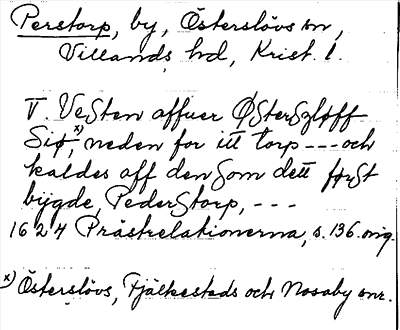 Perstorp, by, Österslövs sn,
Villands hd, Krist. l.
V. Vesten affuer Østerszløff
Siø x), neden for itt torp --- och
kaldes aff den som dett først
bÿgde, Pederstorp, ---
1624 Prästrelationerna, s. 136. orig.
x) Österslövs, Fjälkestads och Nosaby snr.